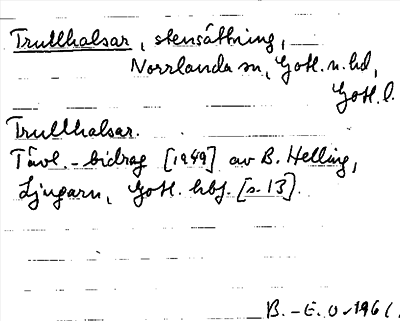 Trullhalsar, stensättning,
Norrlanda sn, Gotl. n. hd,
Gotl. l.
Trullhalsar.
Tävl.-bidrag [1949] av B. Helling,
Ljugarn, Gotl. hbf. [s. 13].
B.-E. O-1961.